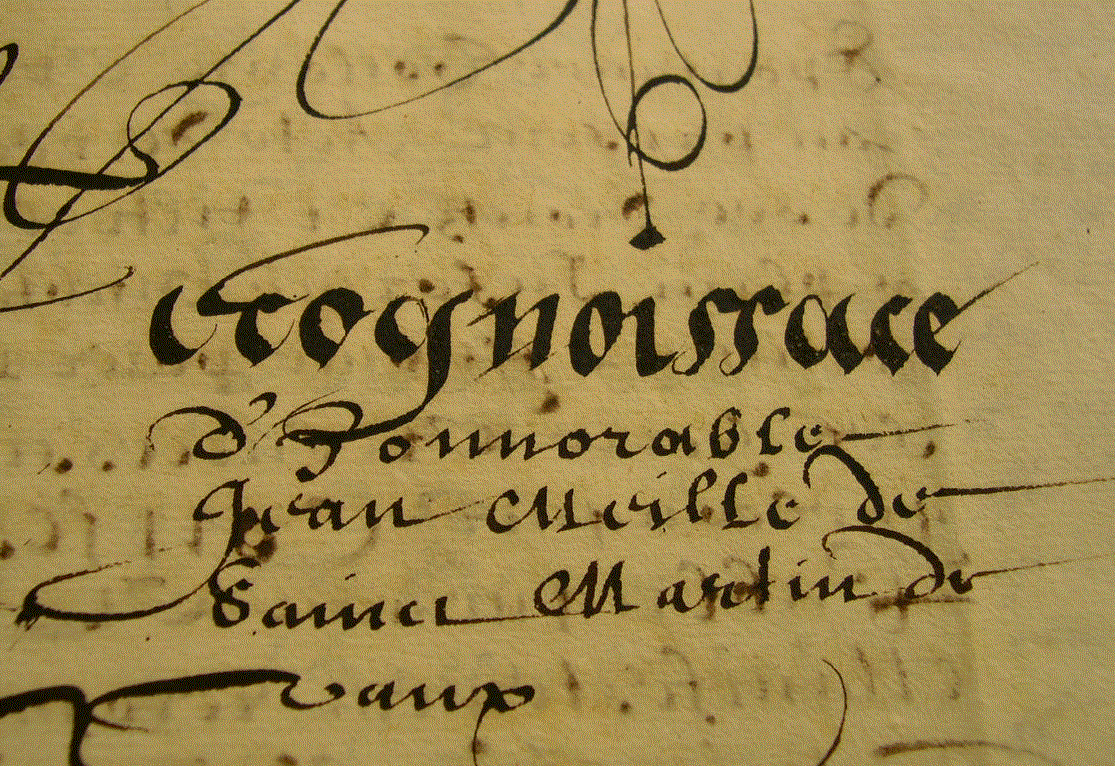 Cognoissace
d'honnorable
Jean Meille de
Sainct Martin de
vaux